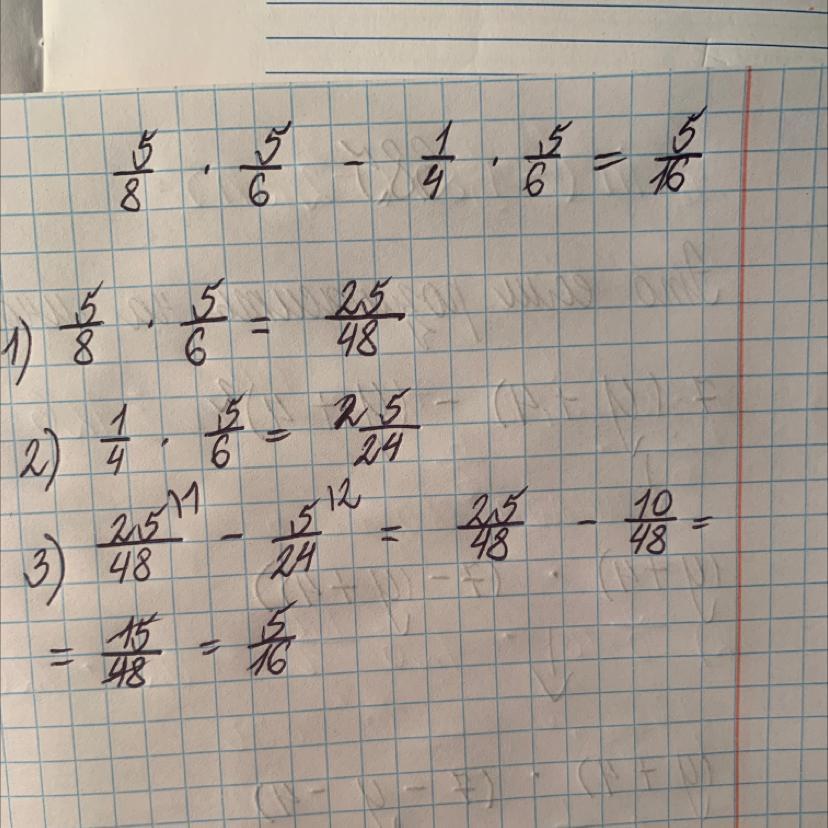 5/8 · 5/6 - 1/4 · 5/6 = 5/16
1) 5/8 · 5/6 = 25/48
2) 1/4 · 5/6 = 25/24
3) 25/48 \1 - 5/24 \2 = 25/48 - 10/48 =
= 15/48 = 5/16